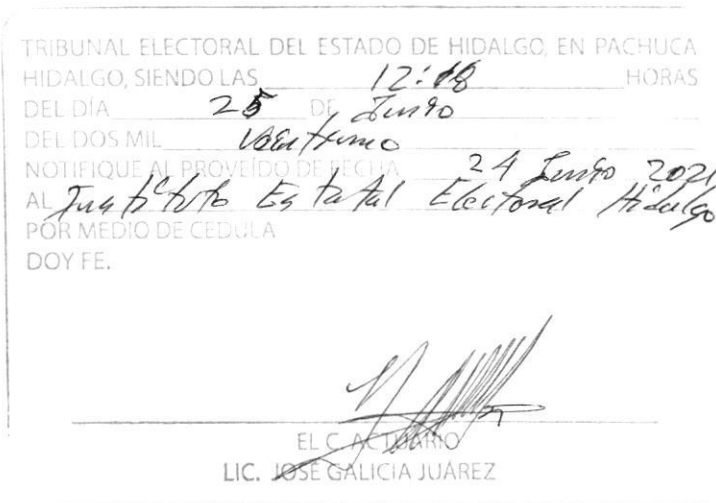 TRIBUNAL ELECTORAL DEL ESTADO DE HIDALGO, EN PACHUCA
HIDALGO, SIENDO LAS 12:18 HORAS
DEL DÍA 25 DE Junio
DEL DOS MIL Veintiuno
NOTIFIQUE AL PROVEÍDO DE FECHA 24 Junio 2021
AL Instituto Estatal Electoral Hidalgo
POR MEDIO DE CEDULA
DOY FE.
EL C. ACTUARIO
LIC. JOSÉ GALICIA JUÁREZ